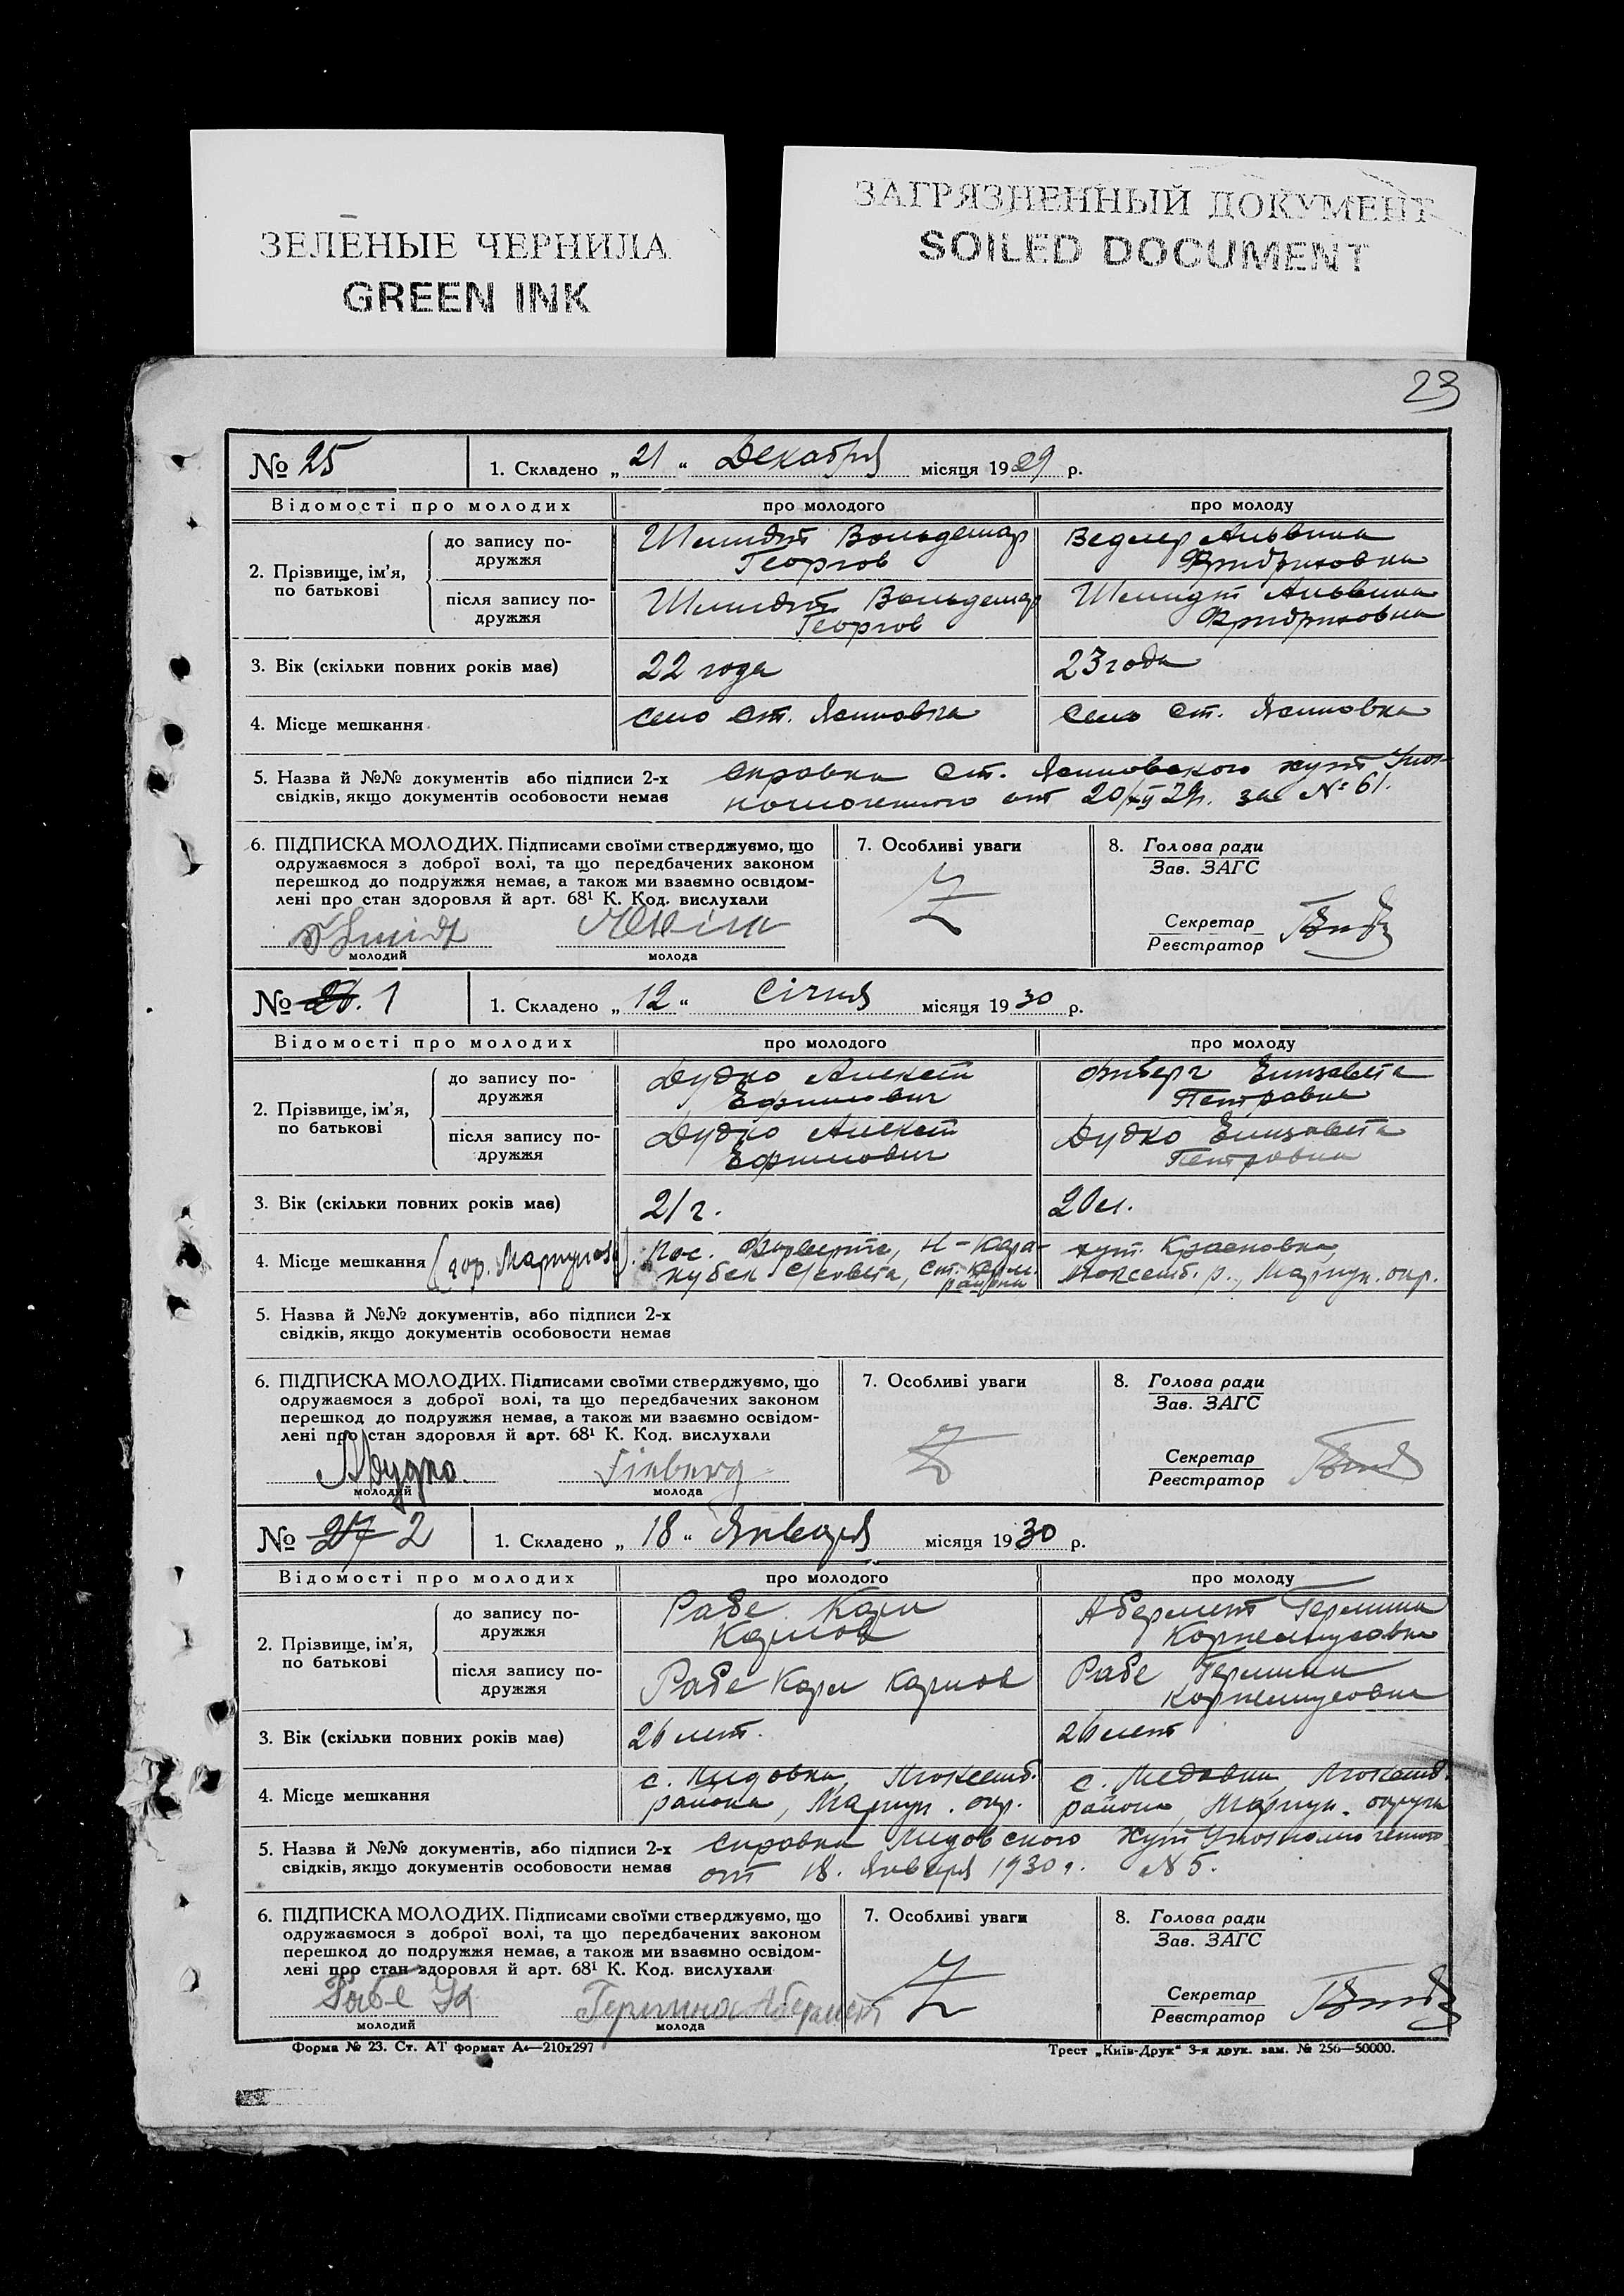 ЗЕЛЁНЫЕ ЧЕРНИЛА
GREEN INK
ЗАГРЯЗНЕННЫЙ ДОКУМЕНТ
SOILED DOCUMENT
23
№ 25 1. Складено „21“ Декабря місяця 1929 р.
Відомості про молодих про молодого про молоду
2. Прізвище, ім’я, по батькові
до запису подружжя
Шмидт Вольдемар
Георгов
Ведлер Альвина
Фридриховна
після запису подружжя
Шмидт Вольдемар
Георгов
Шмидт Альвина
Фридриховна
3. Вік (скільки повних років має) 22 года 23 года
4. Місце мешкання село Ст. Ясиновка село Ст. Ясиновка
5. Назва й №№ документів або підписи 2-х справка Ст. Ясиновского хут Упол-
свідків, якщо документів особовости немає номоченного от 20/XII 29г. за № 61.
6. ПІДПИСКА МОЛОДИХ. Підписами своїми стверджуємо, що
одружаємося з доброї волі, та що передбачених законом
перешкод до подружжя немає, а також ми взаємно освідом-
лені про стан здоровля й арт. 68¹ К. Код. вислухали
Schmidt Alwina
молодий молода
7. Особливі уваги
8. Голова ради
Зав. ЗАГС
Секретар
Реєстратор
№ 26. 1 1. Складено „12“ Січня місяця 1930 р.
Відомості про молодих про молодого про молоду
2. Прізвище, ім’я, по батькові
до запису подружжя
Дудко Алексей
Ефимович
Финберг Елизавета
Петровна
після запису подружжя
Дудко Алексей
Ефимович
Дудко Елизавета
Петровна
3. Вік (скільки повних років має) 21 г. 20 л.
4. Місце мешкання (гор. Мариуполь). пос. Н-Кара-
кубск с/совета, Ст. района
хут. Красновка,
Люксемб. р., Мариуп. окр.
5. Назва й №№ документів, або підписи 2-х
свідків, якщо документів особовости немає
6. ПІДПИСКА МОЛОДИХ. Підписами своїми стверджуємо, що
одружаємося з доброї волі, та що передбачених законом
перешкод до подружжя немає, а також ми взаємно освідом-
лені про стан здоровля й арт. 68¹ К. Код. вислухали
АДудко. Finberg
молодий молода
7. Особливі уваги
8. Голова ради
Зав. ЗАГС
Секретар
Реєстратор
№ 27 2 1. Складено „18“ Января місяця 1930 р.
Відомості про молодих про молодого про молоду
2. Прізвище, ім’я, по батькові
до запису подружжя
Рабе Карл
Карлов
Абермет Гермина
Корнелиусовна
після запису подружжя
Рабе Карл Карлов
Рабе Гермина
Корнелиусовна
3. Вік (скільки повних років має) 26 лет. 26 лет
4. Місце мешкання
с. Люксемб.
района, Мариуп. окр.
с. Люксемб.
района, Мариуп. округа
5. Назва й №№ документів, або підписи 2-х справка хут Уполномоченного
свідків, якщо документів особовости немає от 18. Января 1930 г. № 5.
6. ПІДПИСКА МОЛОДИХ. Підписами своїми стверджуємо, що
одружаємося з доброї волі, та що передбачених законом
перешкод до подружжя немає, а також ми взаємно освідом-
лені про стан здоровля й арт. 68¹ К. Код. вислухали
Рабе Гермина Абермет
молодий молода
7. Особливі уваги
8. Голова ради
Зав. ЗАГС
Секретар
Реєстратор
Форма № 23. Ст. АТ формат А₄—210х297
Трест „Київ-Друк“ 3-я друк. зам. № 256—50000.